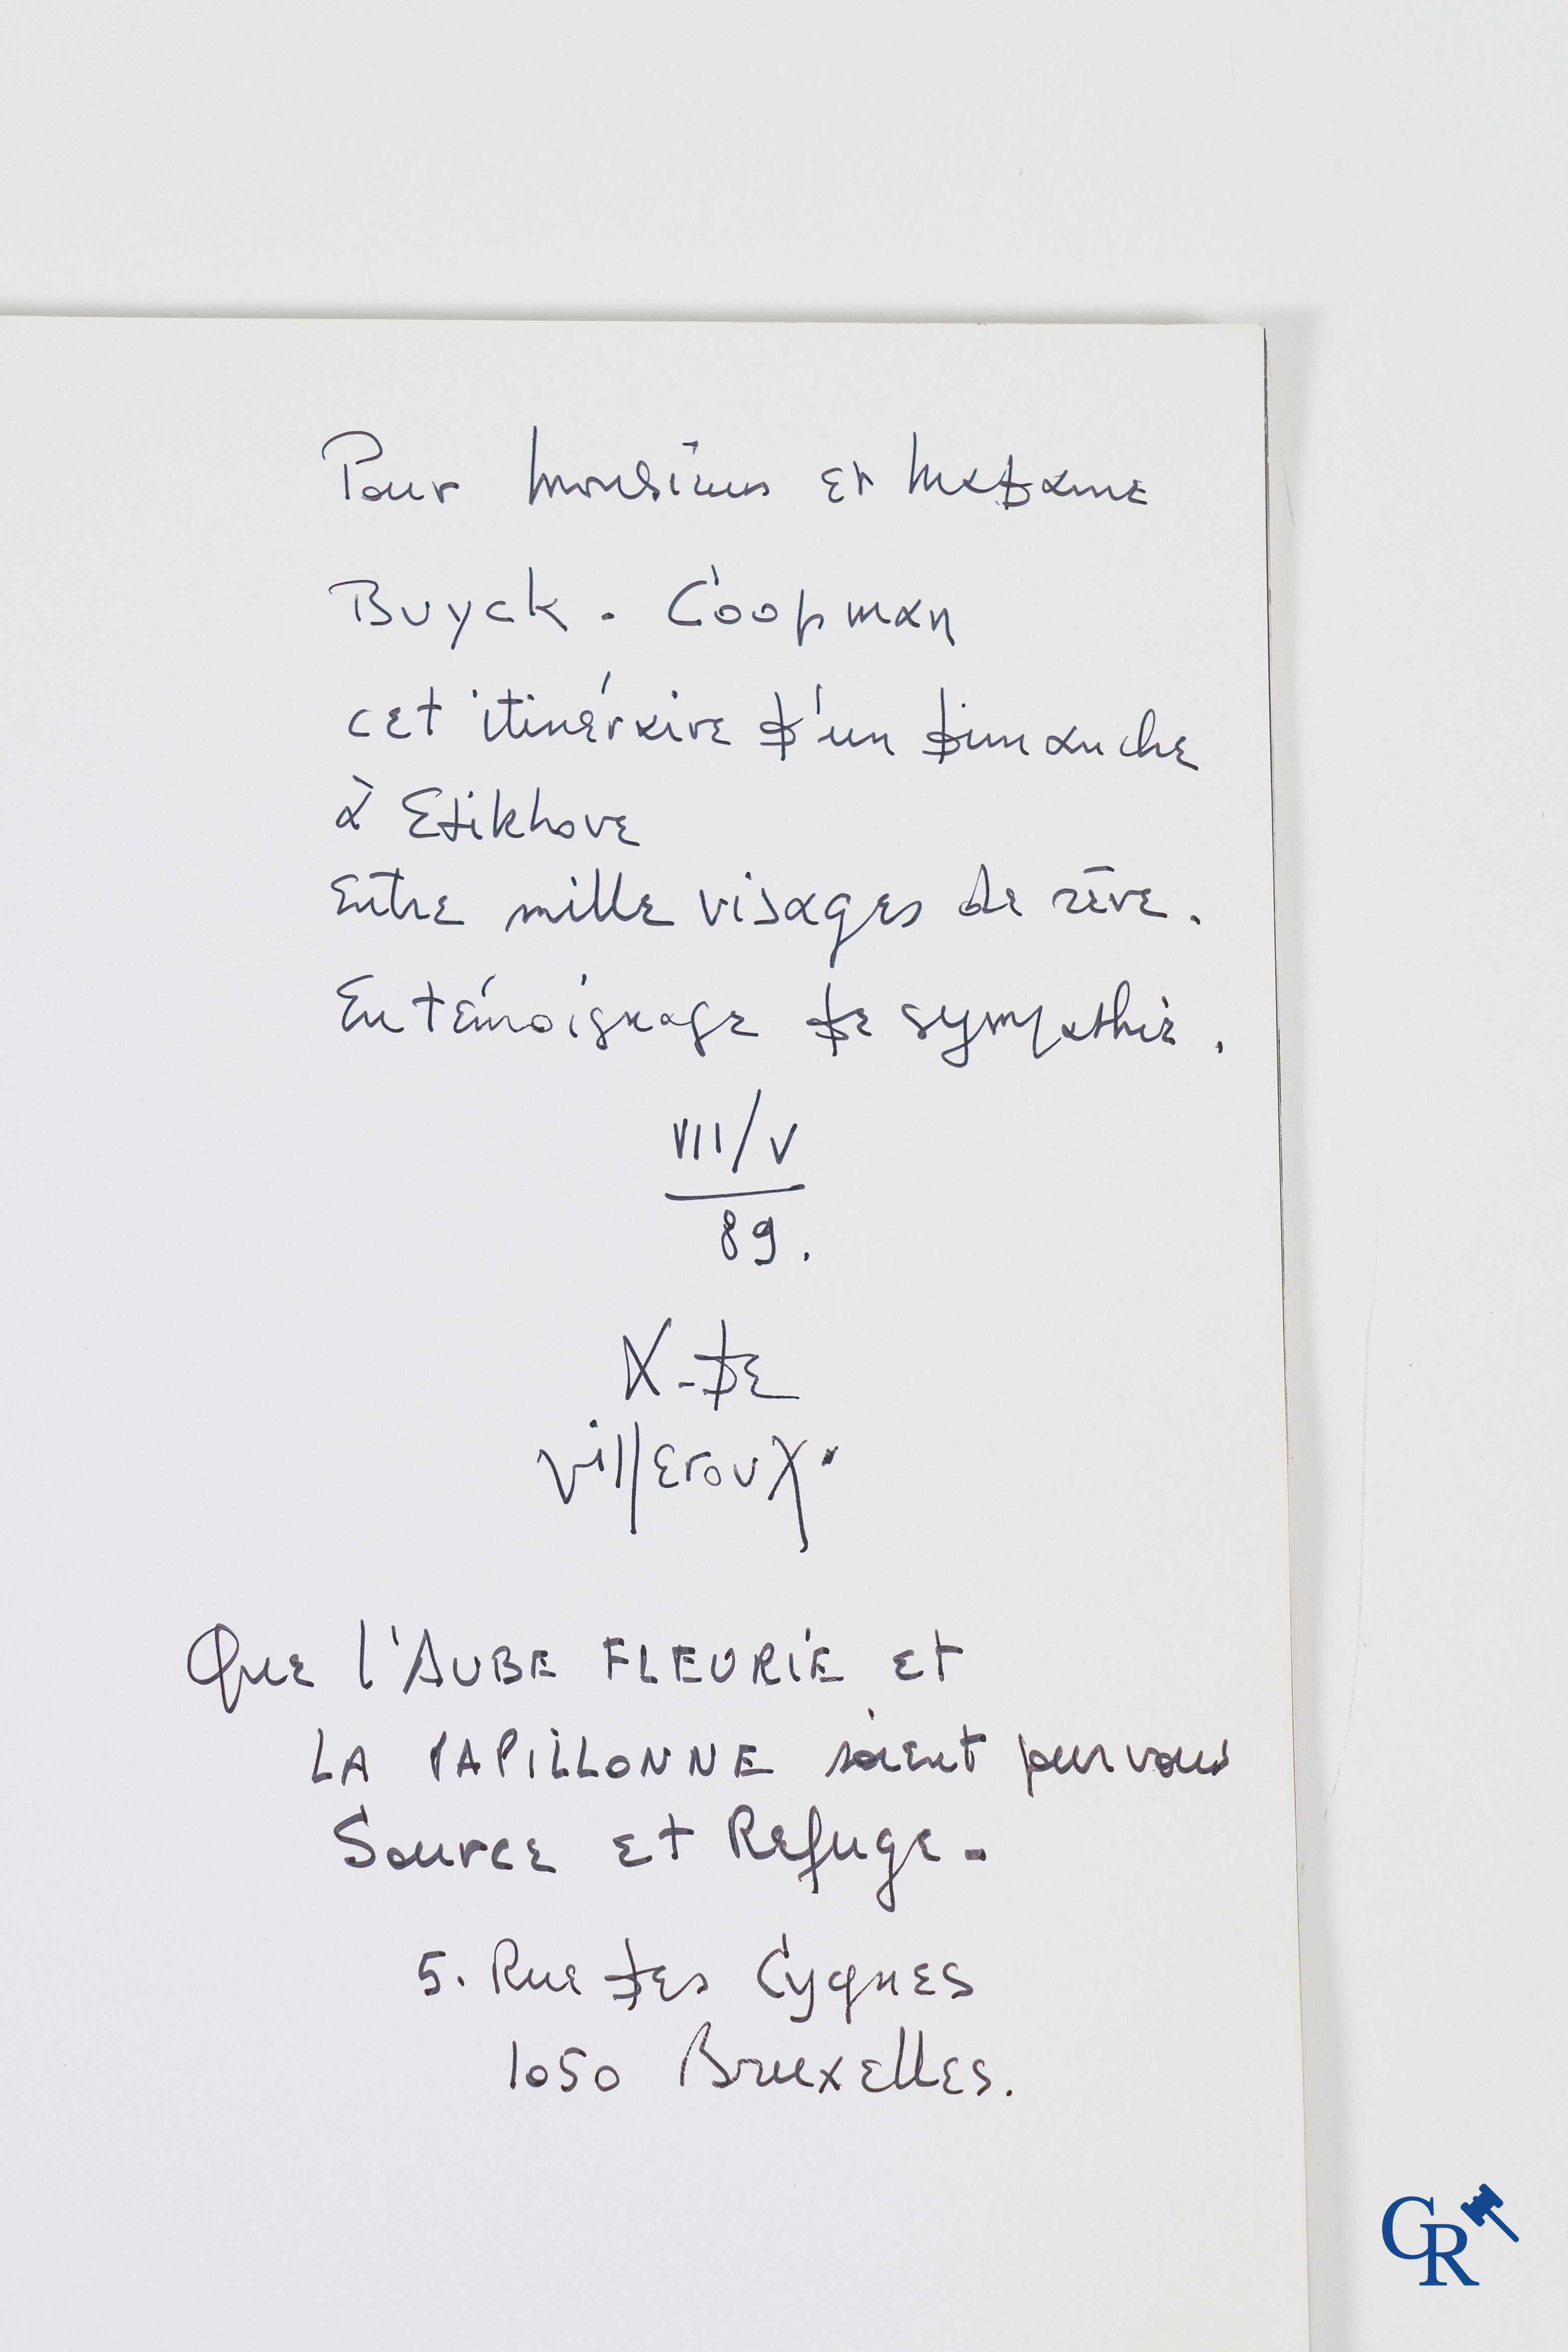 Pour Monsieur et Madame
Buyck - Coopman
cet itinéraire d'un dimanche
à Etikhove
Entre mille visages de rêve.
En témoignage de sympathie.
VII/V
89.
X-de
villeroux.
Que l'AUBE FLEURIE et
LA PAPILLONNE soient pour vous
Source et Refuge.
5. Rue des Cygnes
1050 Bruxelles.
CR